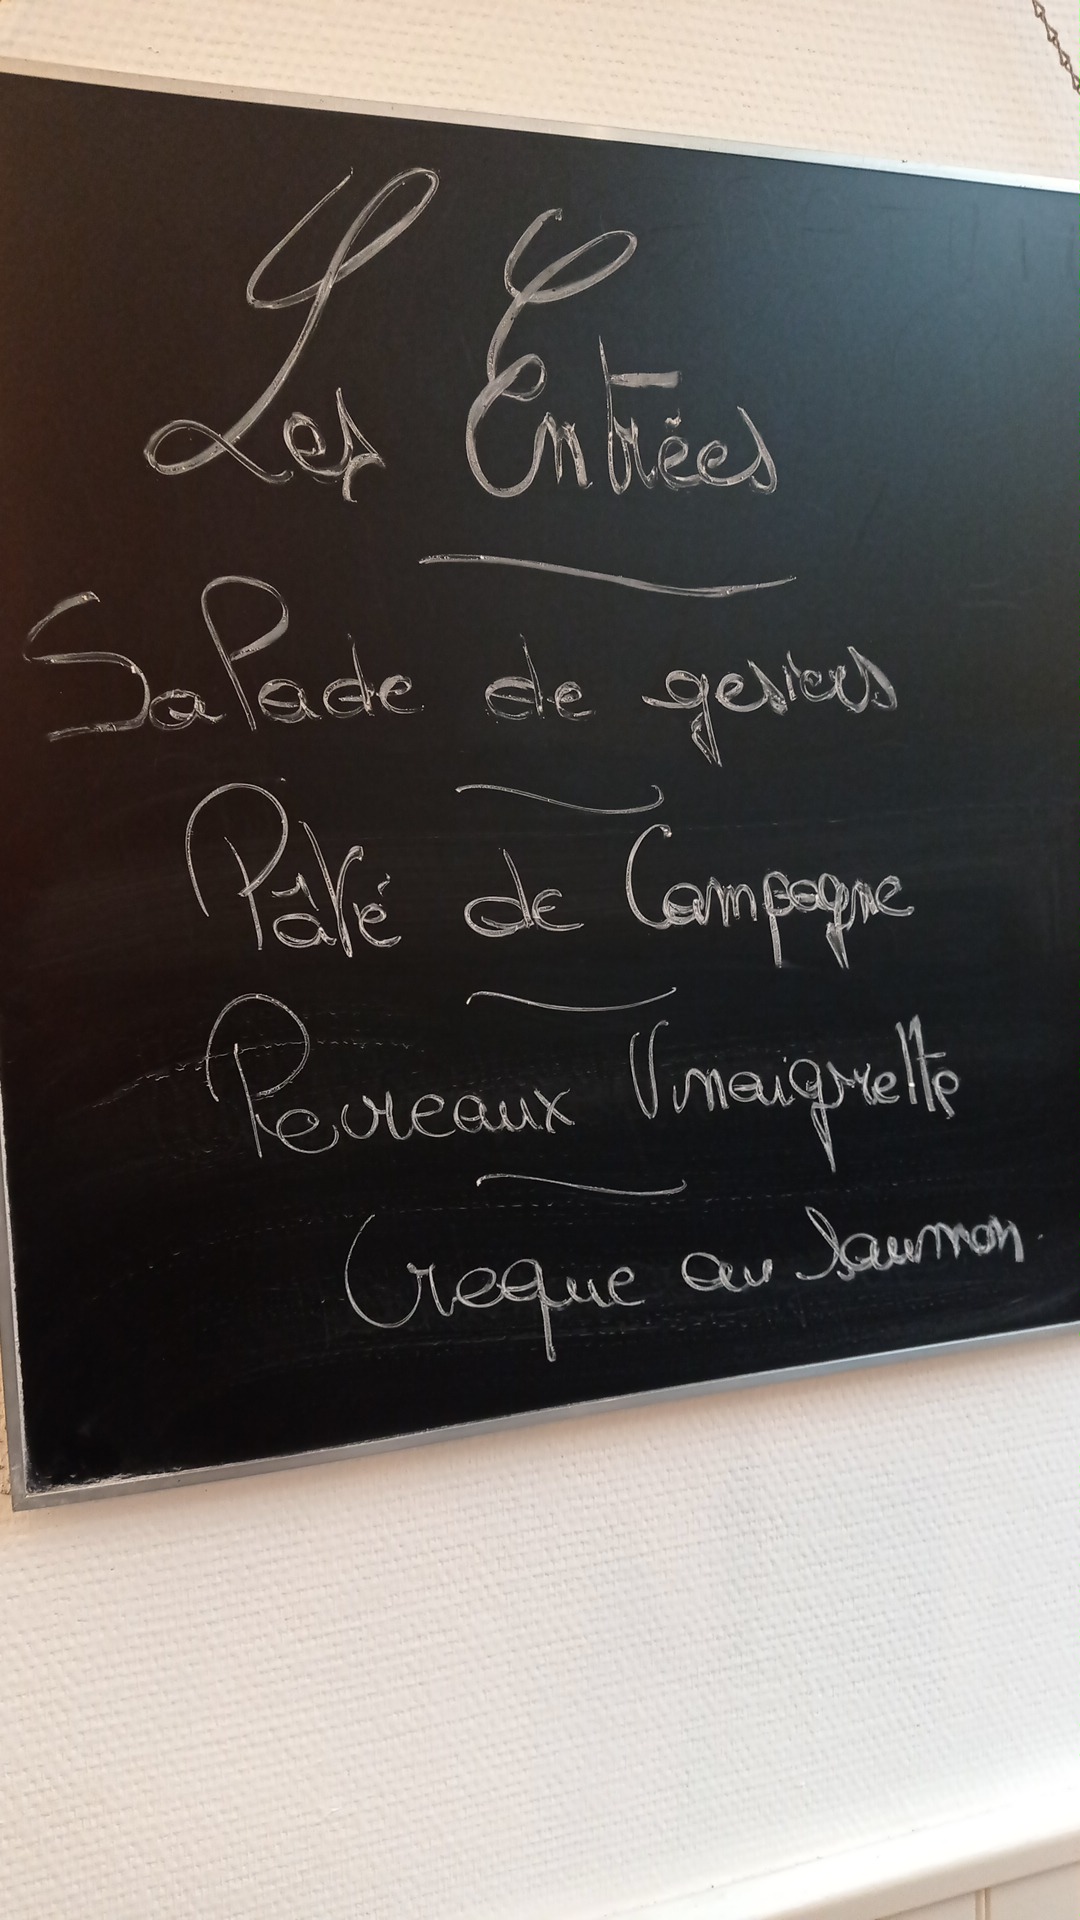 Les Entrées
Salade de gesiers
Pâté de Campagne
Poireaux Vinaigrette
Croque au Saumon